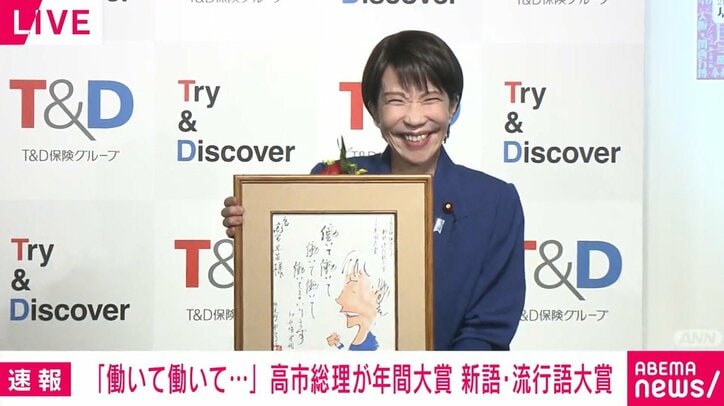 LIVE
T&D
T&D保険グループ
Try
& Discover
T&D
T&D保険グループ
Try
& Discover
Try
& Discover
T&D
T&D保険グループ
T&D
T&D保険グループ
働いて働いて
働いて働いて
働いてまいります
ANN
速報
「働いて働いて…」高市総理が年間大賞 新語・流行語大賞
ABEMA
news/